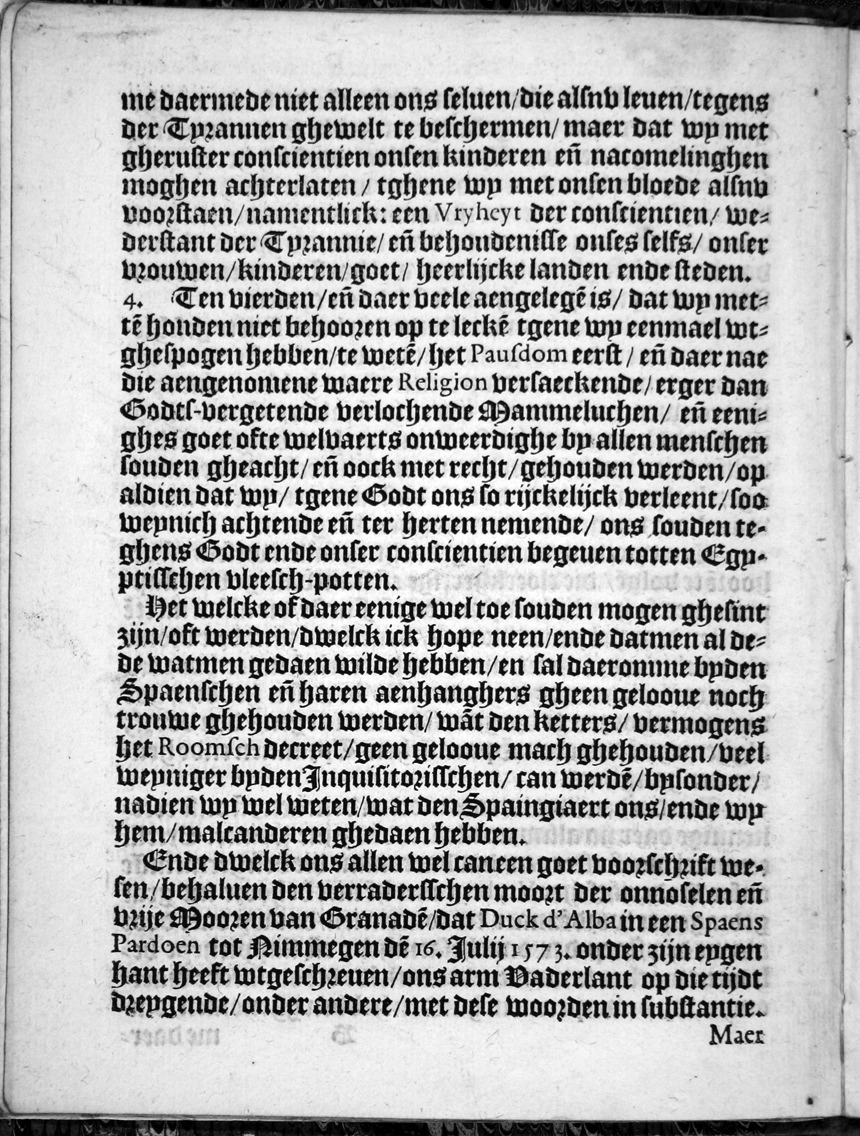 me daermede niet alleen ons seluen/die alsnv leuen/tegens
der Tyrannen ghewelt te beschermen/ maer dat wy met
gheruster conscientien onsen kinderen eñ nacomelinghen
moghen achterlaten / tghene wy met onsen bloede alsnv
voorstaen/namentlick: een Vryheyt der conscientien/ we-
derstant der Tyrannie/ eñ behoudenisse onses selfs/ onser
vrouwen/kinderen/goet/ heerlijcke landen ende steden.
4. Ten vierden/eñ daer veele aengelegē is/ dat wy met-
tē honden niet behooren op te leckē tgene wy eenmael wt-
ghespogen hebben/te wetē/het Pausdom eerst / eñ daer nae
die aengenomene waere Religion versaeckende/erger dan
Godts-vergetende verlochende Mammeluchen/ eñ eeni-
ghes goet ofte welvaerts onweerdighe by allen menschen
souden gheacht/eñ oock met recht/gehouden werden/op
aldien dat wy/ tgene Godt ons so rijckelijck verleent/soo
weynich achtende eñ ter herten nemende/ ons souden te-
ghens Godt ende onser conscientien begeuen totten Egy-
ptisschen vleesch-potten.
Het welcke of daer eenige wel toe souden mogen ghesint
zijn/oft werden/dwelck ick hope neen/ende datmen al de-
de watmen gedaen wilde hebben/en sal daeromme byden
Spaenschen eñ haren aenhanghers gheen gelooue noch
trouwe ghehouden werden/wāt den ketters/ vermogens
het Roomsch decreet/geen gelooue mach ghehouden/veel
weyniger byden Inquisitorisschen/ can werdē/bysonder/
nadien wy wel weten/wat den Spaingiaert ons/ende wy
hem/malcanderen ghedaen hebben.
Ende dwelck ons allen wel can een goet voorschrift we-
sen/behaluen den verradersschen moort der onnoselen eñ
vrije Mooren van Granadē/dat Duck d'Alba in een Spaens
Pardoen tot Nimmegen dē 16. Julij 1573. onder zijn eygen
hant heeft wtgeschreuen/ons arm Vaderlant op die tijdt
dreygende/onder andere/met dese woorden in substantie.
Maer